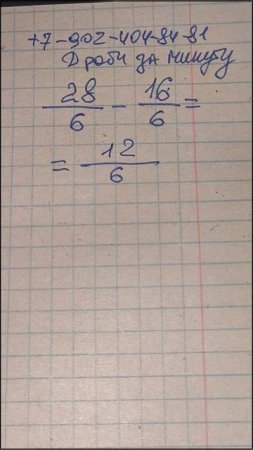 +7-902-404-84-81
Дроби за минуту
28/6 - 16/6 =
= 12/6